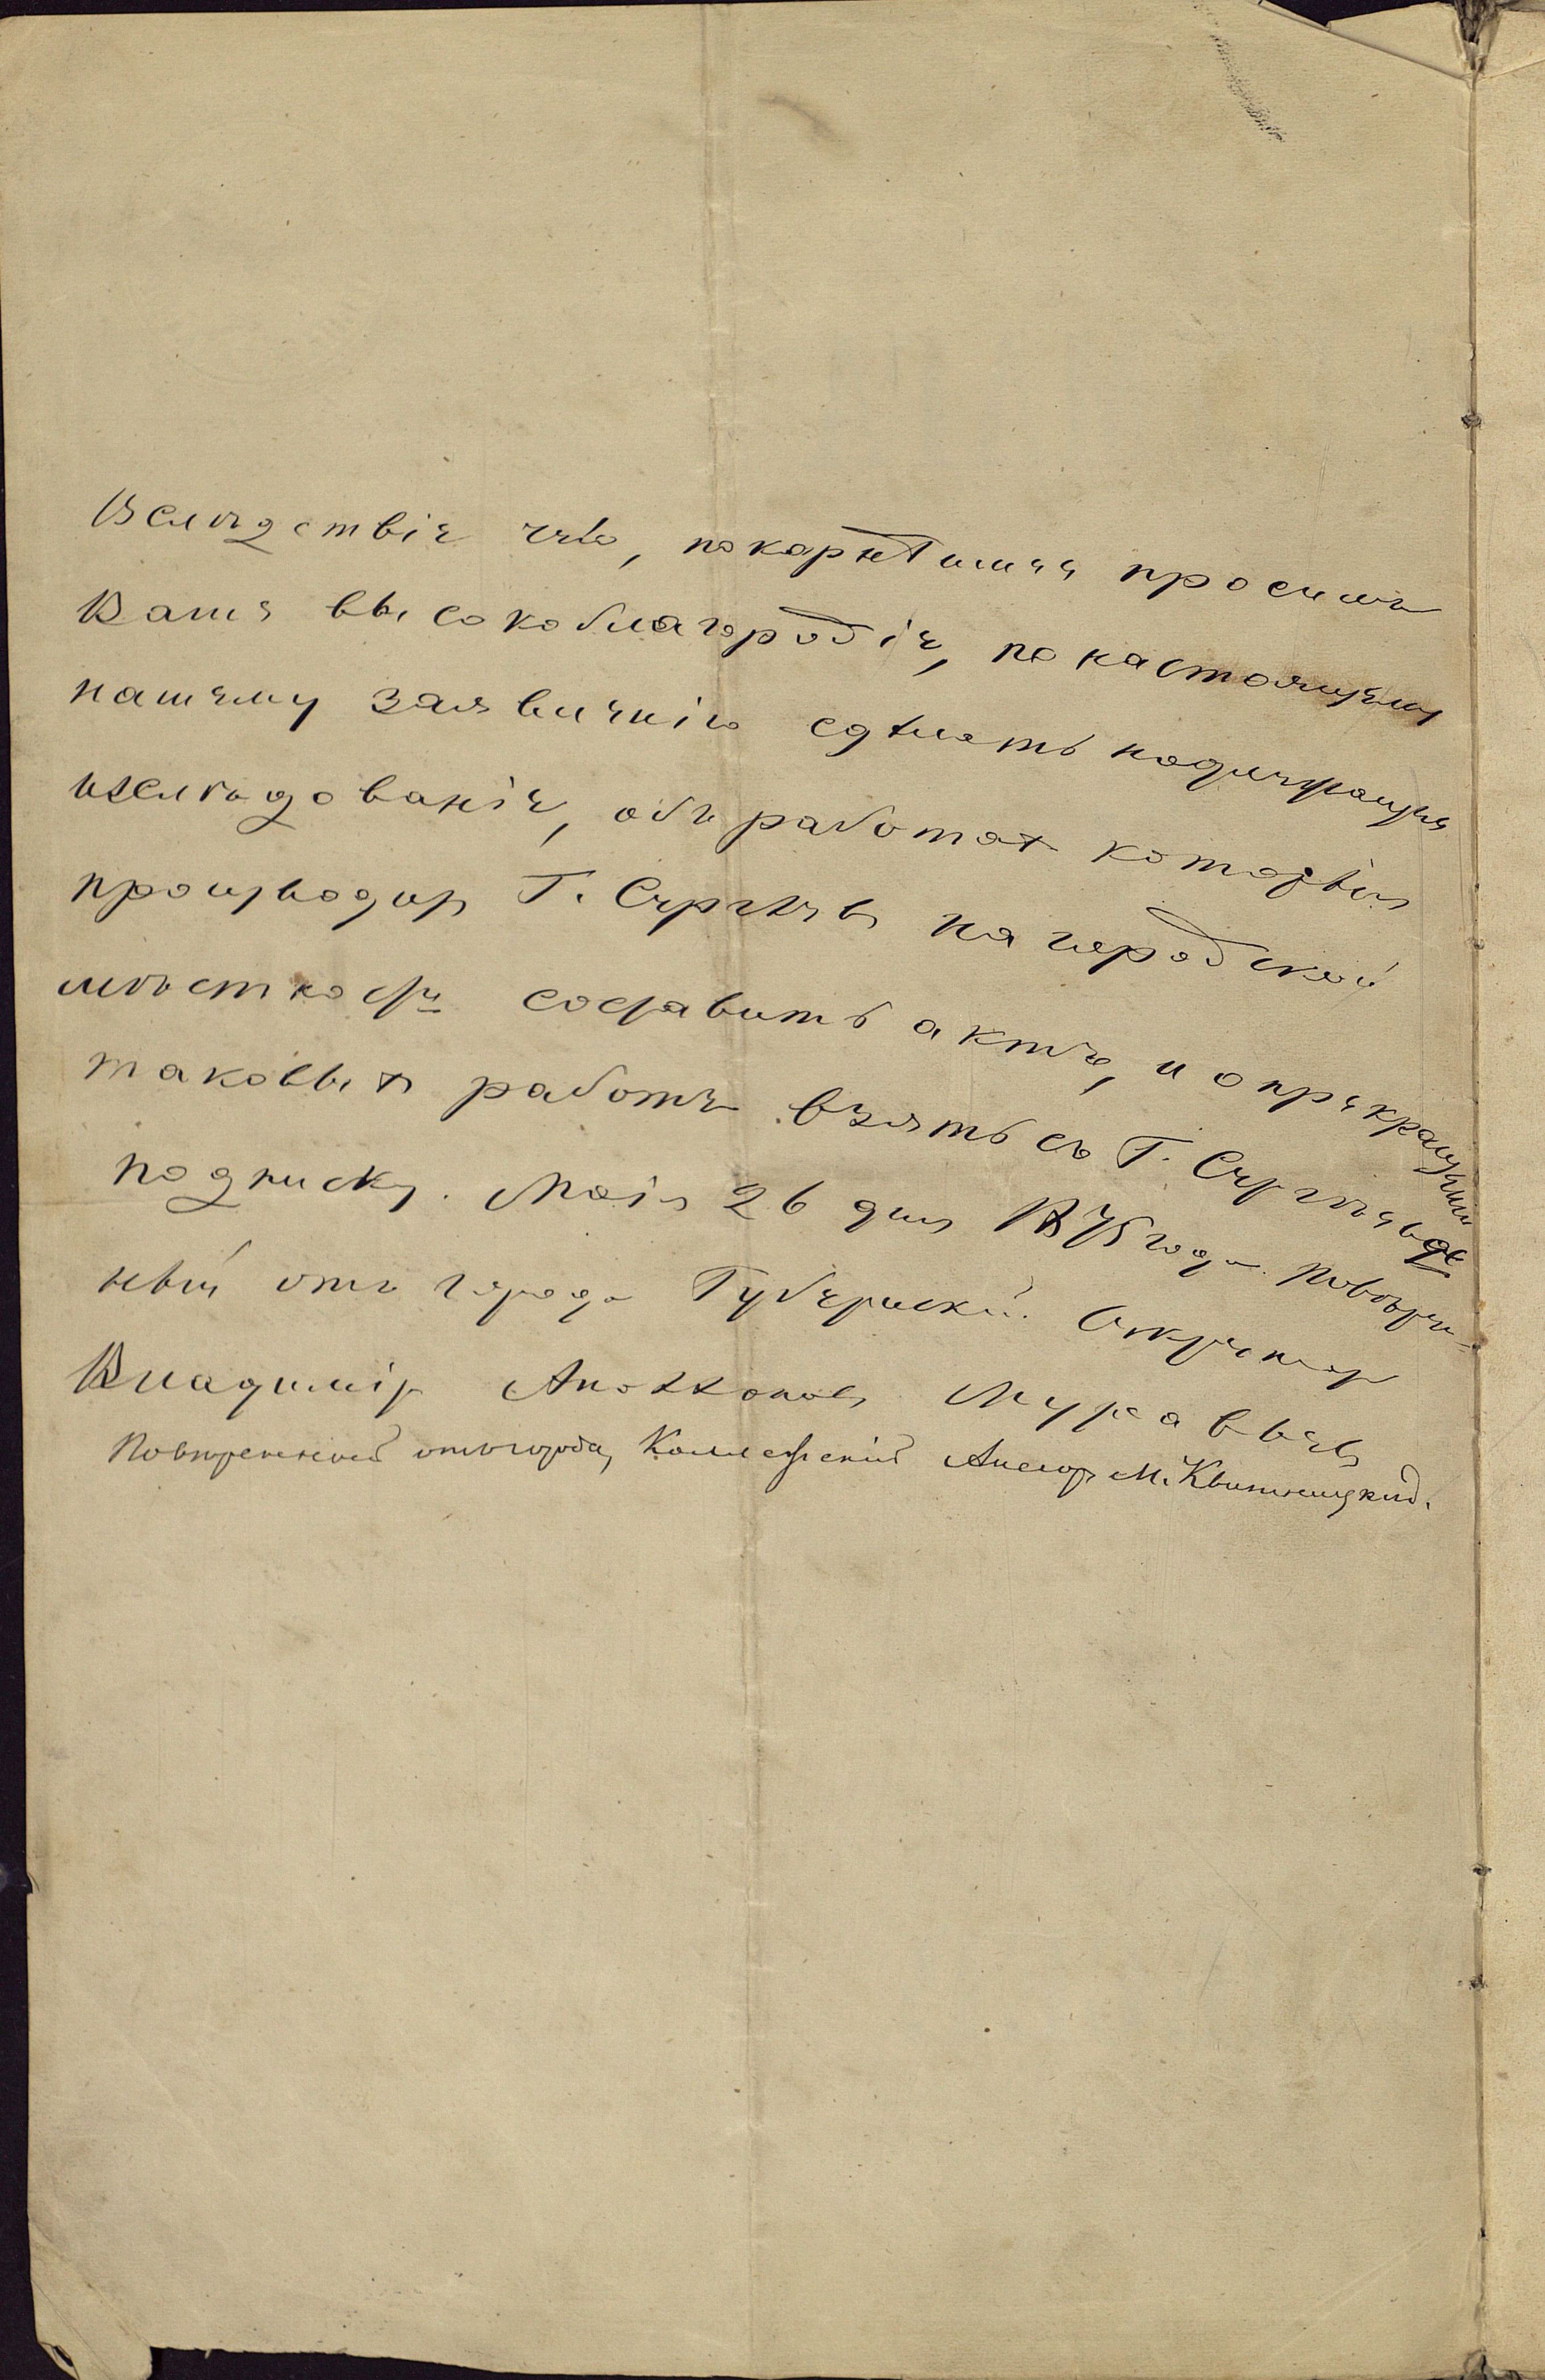 Вслѣдствіе чего, покорнѣйше просимъ
Ваше высокоблагородіе, по настоящему
нашему заявленію сдѣлать надлежащее
изслѣдованіе, объ работах которыя
производит Г. Сергѣев на городской
мѣстности составить актъ, и о прекращении
таковых работъ взять съ Г. Сергѣева
подписку. Маія 26 дня 1875 года. Повѣрен-
ный отъ города Губернскій Секретар
Владимір Муравьев
Повѣренный отъ города, Коллежскій Асесор М. Квитницкій.